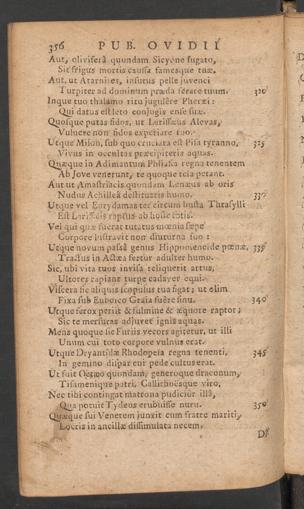 356 PUB. OVIDII
Aut, oliviferâ quondam Sicyone fugato,
Sit frigus mortis causa famesque tuæ.
Aut, ut Atarnites, insutus pelle juvenci
Turpiter ad dominum præda ferare tuum. 320
Inque tuo thalamo ritu jugulêre Pheræi:
Qui datus est leto conjugis ense suæ.
Quosque putas fidos, ut Larissæus Alevas,
Vulnere non fidos experiare tuo.
Utque Milon, sub quo cruciata est Pisa tyranno, 325
Vivus in occultas præcipiteris aquas.
Quæque in Adimantum Phliasia regna tenentem
Ab Jove venerunt, te quoque tela petant.
Aut ut Amastriacis quondam Lenæus ab oris
Nudus Achilleâ destituaris humo. 330
Utque vel Eurydamas ter circum busta Thrasylli
Est Larissæis raptus ab hoste rotis.
Vel qui quæ fuerat tutatus mœnia sæpe
Corpore lustravit non diuturna suo:
Utque novum passâ genus Hippomeneide pœnæ, 335
Tractus in Actæa fertur adulter humo.
Sic, ubi vita tuos invisa reliquerit artus,
Ultores rapiant turpe cadaver equi.
Viscera sic aliquis scopulus tua figat; ut olim
Fixa sub Euboico Graia fuêre sinu. 340
Utque ferox periit & fulmine & æquore raptor;
Sic te mersuras adjuvet ignis aquas.
Mens quoque sic Furiis vecors agitetur, ut illi
Unum cui toto corpore vulnus erat.
Utque Dryantidæ Rhodopeia regna tenenti, 345
In gemino dispar cui pede cultus erat.
Ut fuit Oetæo quondam, generoque draconum,
Tisamenique patri, Callirhoësque viro,
Nec tibi contingat matrona pudicior illâ,
Qua potuit Tydeus erubuisse nuru. 350
Quæque sui Venerem junxit cum fratre mariti,
Locris in ancillæ dissimulata necem.